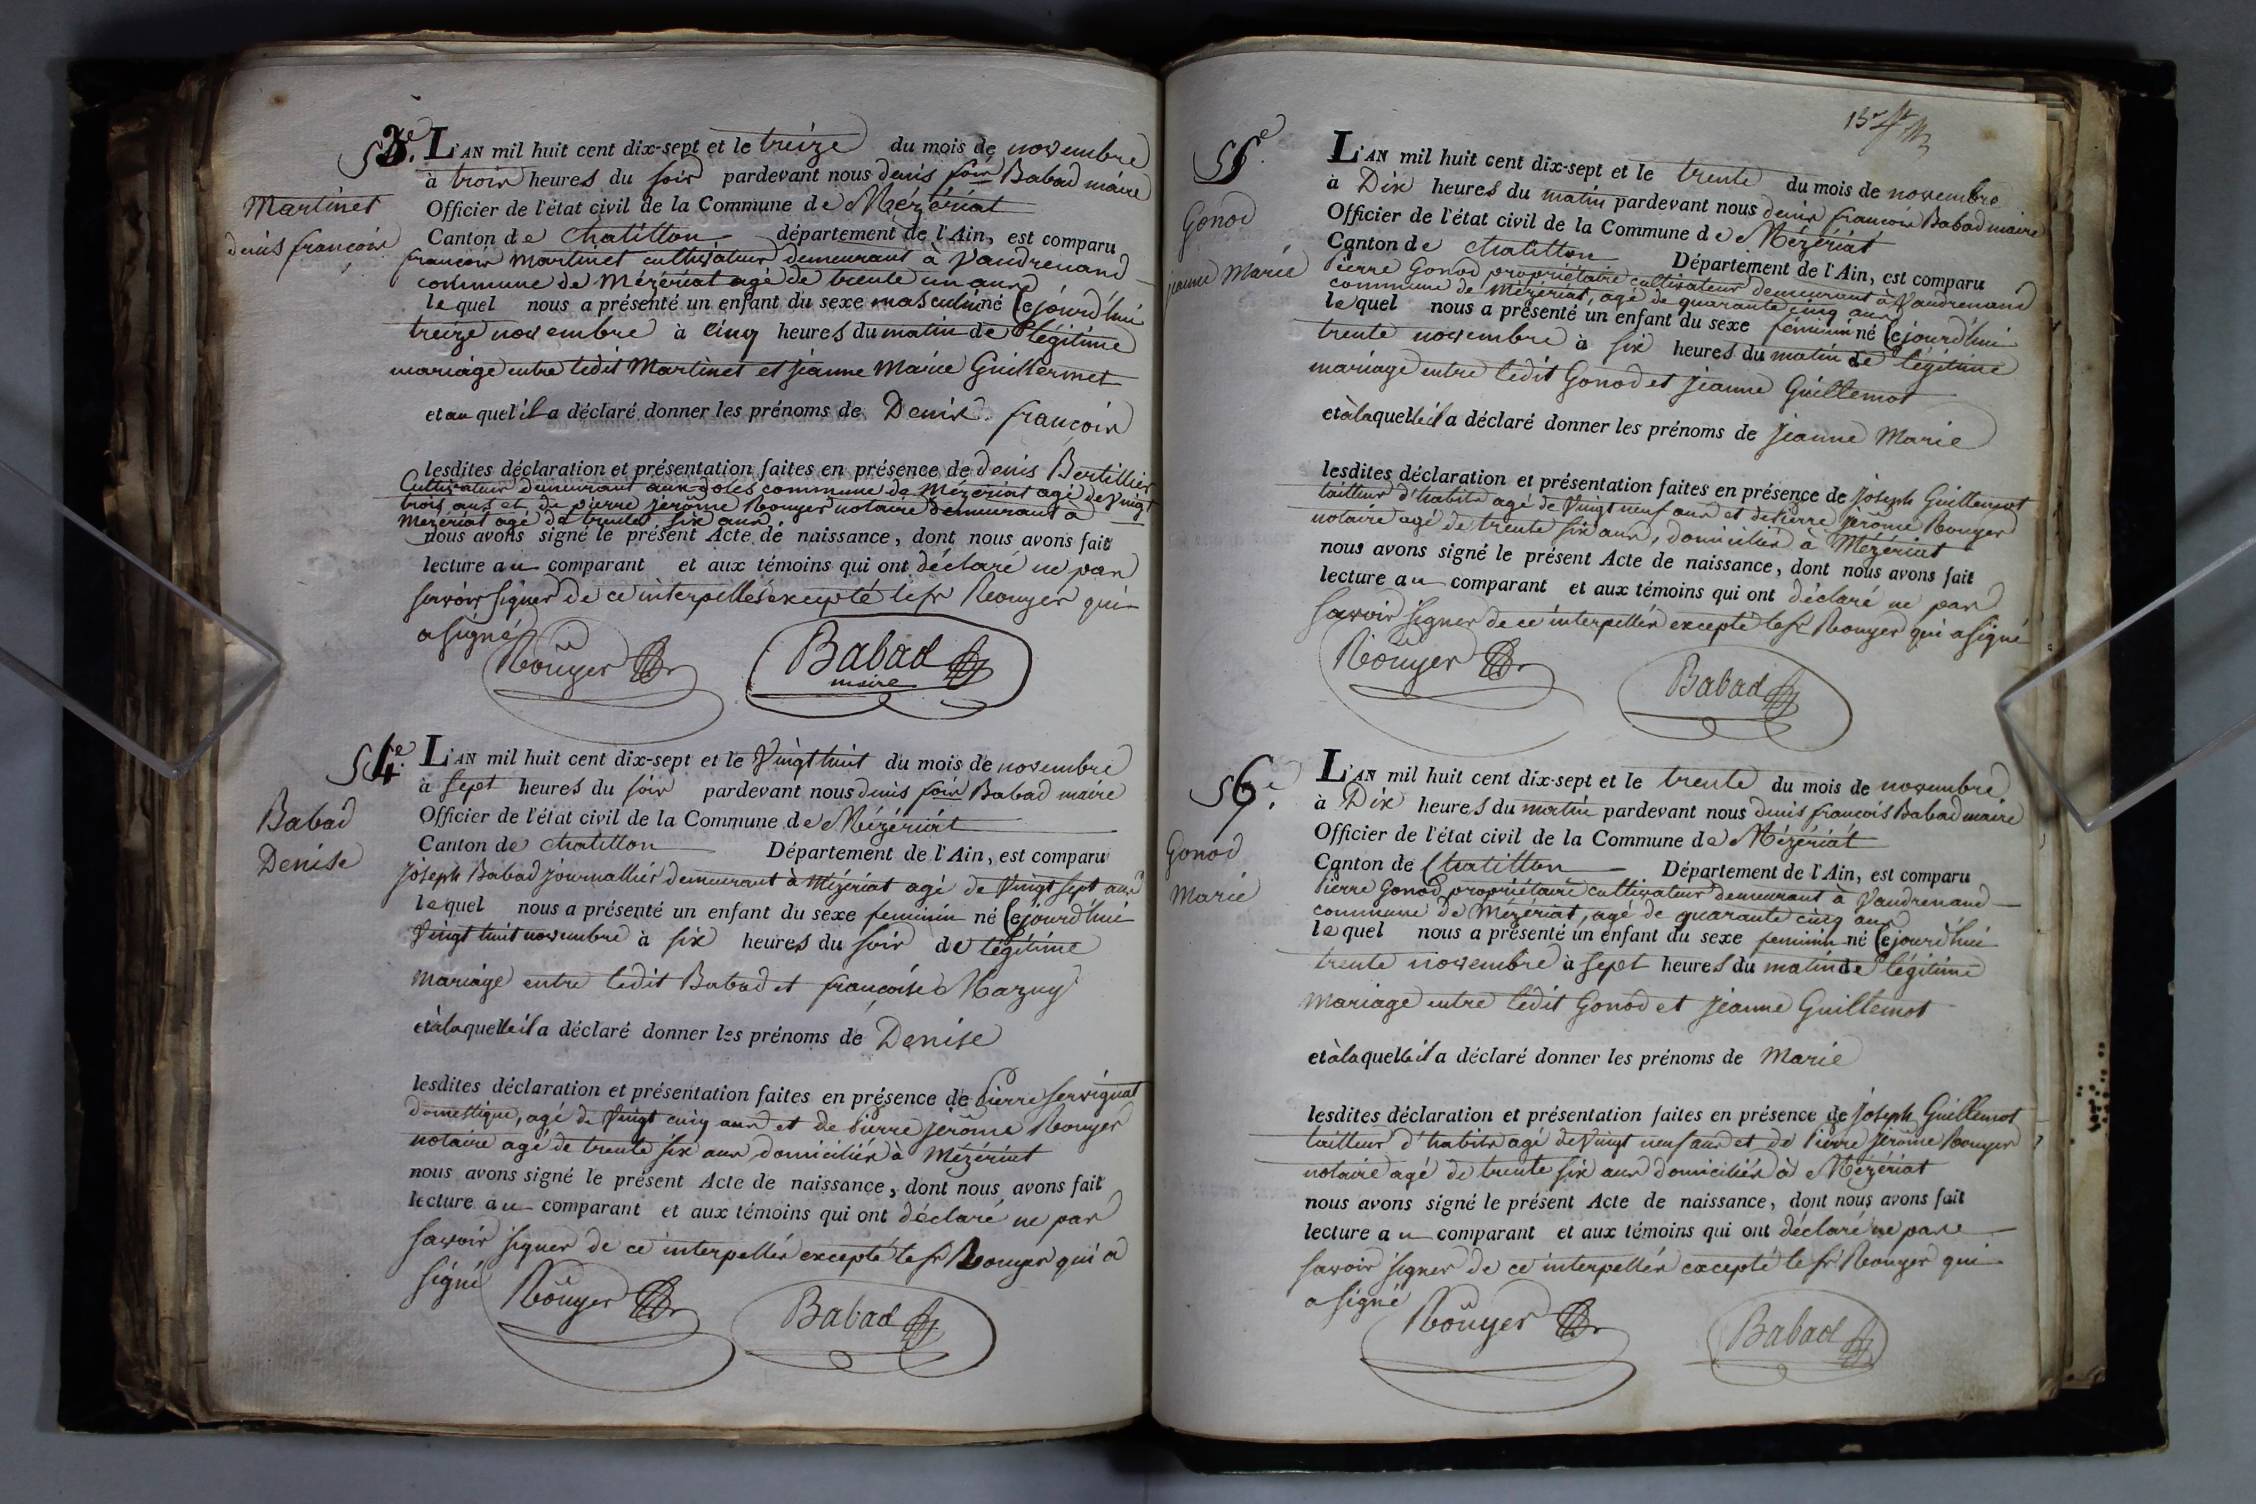 53.e L'AN mil huit cent dix-sept et le treize du mois de novembre
à trois heures du soir pardevant nous denis fois Babad maire
Martinet
denis françois
Officier de l'état civil de la Commune de Mézériat
Canton de chatillon département de l'Ain, est comparu
françois Martinet cultivateur demeurant à Vaudrenand
commune de Mézériat agé de trente un ans
lequel nous a présenté un enfant du sexe masculin né Cejourd'hui
treize novembre à cinq heures du matin de légitime
mariage entre ledit Martinet et jeanne Marie Guillermet
et au quel il a déclaré donner les prénoms de Denis françois
lesdites déclaration et présentation faites en présence de denis Bertillier
Cultivateur demeurant aux commune de Mézériat agé de Vingt
trois ans et de pierre jerôme Rouyer notaire demeurant à
Mézériat agé de trente six ans
nous avons signé le présent Acte de naissance, dont nous avons fait
lecture au comparant et aux témoins qui ont déclaré ne pas
savoir signer de ce interpellés excepté le sr Rouyer qui
a signé
Roüyer
Babad
maire
54.e L'AN mil huit cent dix-sept et le Vingt huit du mois de novembre
à sept heures du soir pardevant nous denis fois Babad maire
Babad
Denise
Officier de l'état civil de la Commune de Mézériat
Canton de chatillon Département de l'Ain, est comparu
joseph Babad journallier demeurant à Mézériat agé de Vingt sept ans
lequel nous a présenté un enfant du sexe feminin né Cejourd'hui
Vingt huit novembre à six heures du soir de légitime
mariage entre ledit Babad et françoise Mazuy
et à laquelle il a déclaré donner les prénoms de Denise
lesdites déclaration et présentation faites en présence de Pierre servignat
domestique, agé de Vingt cinq ans et de Pierre jerôme Rouyer
notaire agé de trente six ans domiciliés à Mézériat
nous avons signé le présent Acte de naissance, dont nous avons fait
lecture au comparant et aux témoins qui ont déclaré ne pas
savoir signer de ce interpellés excepté le sr Rouyer qui a
signé
Roüyer
Babad
55.e L'AN mil huit cent dix-sept et le trente du mois de novembre
à Dix heures du matin pardevant nous denis françois Babad maire
Gonod
jeanne Marie
Officier de l'état civil de la Commune de Mézériat
Canton de chatillon Département de l'Ain, est comparu
Pierre Gonod propriétaire cultivateur demeurant à Vaudrenand
commune de Mézériat, agé de quarante cinq ans
lequel nous a présenté un enfant du sexe féminin né Cejourd'hui
trente novembre à six heures du matin de légitime
mariage entre ledit Gonod et jeanne Guillemot
et à laquelle il a déclaré donner les prénoms de jeanne Marie
lesdites déclaration et présentation faites en présence de joseph Guillemot
tailleur d'habits agé de Vingt neuf ans et de Pierre jerôme Rouyer
notaire agé de trente six ans, domiciliés à Mézériat
nous avons signé le présent Acte de naissance, dont nous avons fait
lecture au comparant et aux témoins qui ont déclaré ne pas
savoir signer de ce interpellés excepté le sr Rouyer qui a signé
Roüyer
Babad
56.e L'AN mil huit cent dix-sept et le trente du mois de novembre
à Dix heures du matin pardevant nous denis françois Babad maire
Gonod
Marie
Officier de l'état civil de la Commune de Mézériat
Canton de Chatillon Département de l'Ain, est comparu
Pierre Gonod propriétaire cultivateur demeurant à Vaudrenand
commune de Mézériat, agé de quarante cinq ans
lequel nous a présenté un enfant du sexe feminin né Cejourd'hui
trente novembre à sept heures du matin de légitime
mariage entre ledit Gonod et jeanne Guillemot
et à laquelle il a déclaré donner les prénoms de Marie
lesdites déclaration et présentation faites en présence de joseph Guillemot
tailleur d'habits agé de Vingt neuf ans et de Pierre jerôme Rouyer
notaire agé de trente six ans domiciliés à Mézériat
nous avons signé le présent Acte de naissance, dont nous avons fait
lecture au comparant et aux témoins qui ont déclaré ne pas
savoir signer de ce interpellés excepté le sr Rouyer qui
a signé
Roüyer
Babad